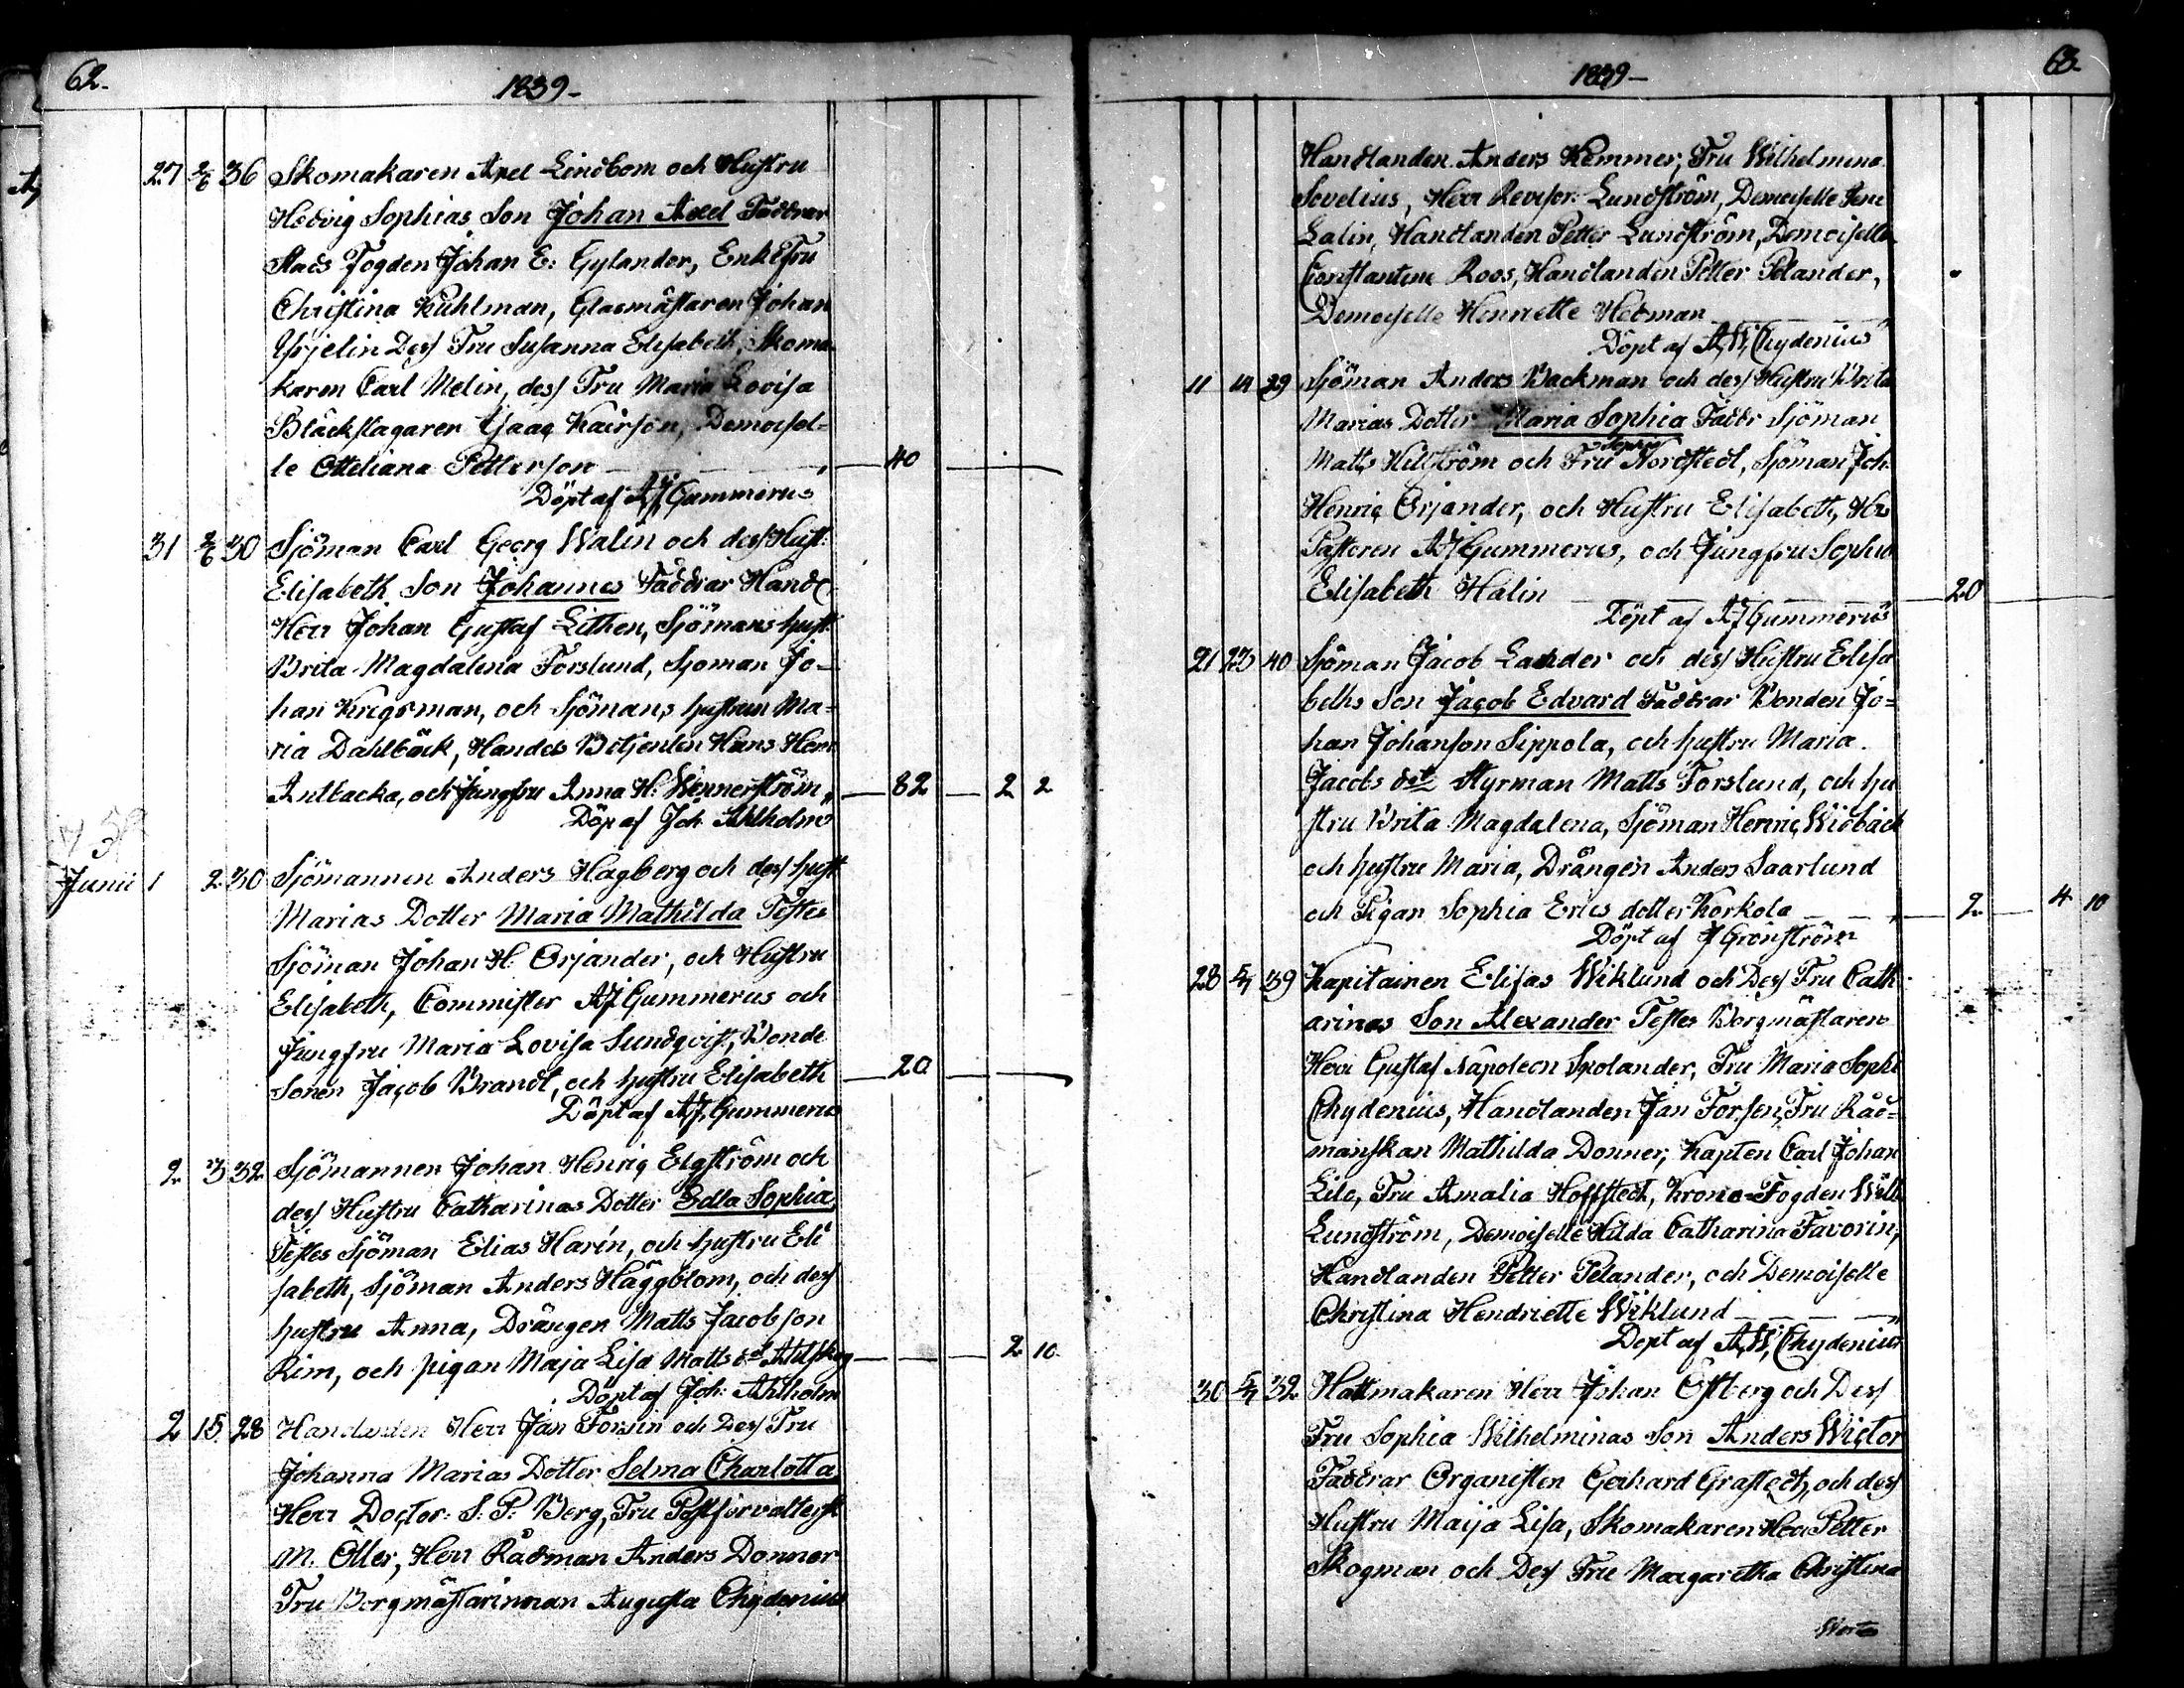 62.
1839-
27 2/6 36 Skomakaren Axel Lindbom och Hustru
Hedvig Sophias Son Johan Axel Faddrar
Stads Fogden Johan E: Gylander, EnkeFru
Christina Kuhlman, Glasmästaren Johan
Yrjelin Dess Fru Susanna Elisabeth, Skoma-
karen Carl Melin, dess Fru Maria Lovisa
Bläckslagaren Isaac Kairson, Demoisel-
le Otteliana Petterson 40
Döpt af AJ Gummerus
31 2/6 30 Sjöman Carl Georg Walin och dess Hust:
Elisabeth Son Johannes Faddrar Handl.
Herr Johan Gustaf Lithen, Sjömans hust:
Brita Magdalena Forslund, Sjöman Jo-
han Krigsman, och Sjömans hustrun Ma-
ria Dahlbäck, Handels Betjenten Hans Hen
Antbacka, och Jungfru Anna H: Wennerström 82 2 2
Döp af Joh Ahlholm
Junii 1 2 30 Sjömannen Anders Hagberg och dess hust
Marias Dotter Maria Mathilda Testes
Sjöman Johan H: Orjander, och Hustru
Elisabeth, Commister AJ Gummerus och
Jungfru Maria Lovisa Sundqvist, Bonde
Sonen Jacob Brandt, och hustru Elisabeth 20
Döpt af AJ, Gummerus
2 3 32 Sjömannen Johan Henric Elgström och
dess Hustru Catharinas Dotter Edla Sophia,
Testes Sjöman Elias Harin, och hustru Eli
sabeth, Sjöman Anders Häggblom, och dess
hustru Anna, Drängen Matts Jacobson
Rim, och pigan Maja Lisa Matts dr 2 10
Döpt af Joh: Ahlholm
2 15 28 Handlanden Herr Jan Forsen och Dess Fru
Johanna Marias Dotter Selma Charlotta
Herr Doctor: S: P: Berg, Fru Postförvaltersk
M. Öller, Herr Rådman Anders Donner
Fru Borgmästarinnan Augusta Chydenius
1839-
63.
Handlanden Anders Kemmer, Fru Wilhelmina
Sovelius, Herr Revisor: Lundström, Demoiselle
Lalin, Handlanden Petter Lundström, Demoiselle
Constantine Roos, Handlanden Petter Pelander,
Demoiselle Henriette Hedman
Döpt af A,W, Chydenius
11 14 29 Sjöman Anders Backman och dess Hustru Brita
Marias Dotter Maria Sophia Faddr Sjöman
Sophia
Matts Hellström och Fru Nordstedt, Sjöman Joh
Henric Orjander, och Hustru Elisabeth, Her
Pastoren AJ Gummerus, och Jungfru Sophia
Elisabeth Halin 20
Döpt af AJ Gummerus
21 23 40 Sjöman Jacob Lander och dess Hustru Elisa
beths Son Jacob Edvard Faddrar Bonden Jo-
han Johanson Sippola, och hustru Maria
Jacobs dotr Styrman Matts Forslund, och hu
stru Brita Magdalena, Sjöman Henric Widbäck
och hustru Maria, Drängen Anders Saarlund
och Pigan Sophia Erics dotter Korkola 2 4 10
Döpt af J Grönström
28 5/7 39 Kapitainen Elisas Wiklund och Dess Fru Cath
arinas Son Alexander Testes Borgmästaren
Herr Gustaf Napoleon Spolander, Fru Maria Sophi
Chydenius, Handlanden Jan Forsen, Fru Råd-
manskan Mathilda Donner, Kapten Carl Johan
Lile, Fru Amalia Hoffstedt, Krono-Fogden Wilh
Lundström, Demoiselle Hilda Catharina Favorin,
Handlanden Petter Pelander, och Demoiselle
Christina Hendriette Wiklund
Döpt af A,W, Chydenius
30 5/7 32 Hattmakaren Herr Johan Östberg och Dess
Fru Sophia Wilhelminas Son Anders Wictor
Faddrar Organisten Gerhard Grastedt, och dess
Hustru Maija Lisa, Skomakaren Herr Petter
Skogman och Dess Fru Margaretha Christina